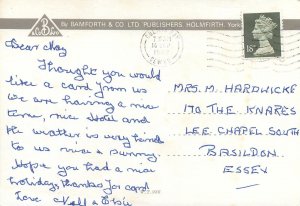 By BAMFORTH & CO LTD PUBLISHERS HOLMFIRTH
Dear May
Thought you would
like a card from us
we are having a nice
time, nice Hotel and
the weather is very kind
to us nice & sunny
Hope you had a nice
holiday, thanks for card
Love Nell &
18P
MRS. M. HARDWICKE
170 THE KNARES
LEE CHAPEL SOUTH
BASILDON
ESSEX